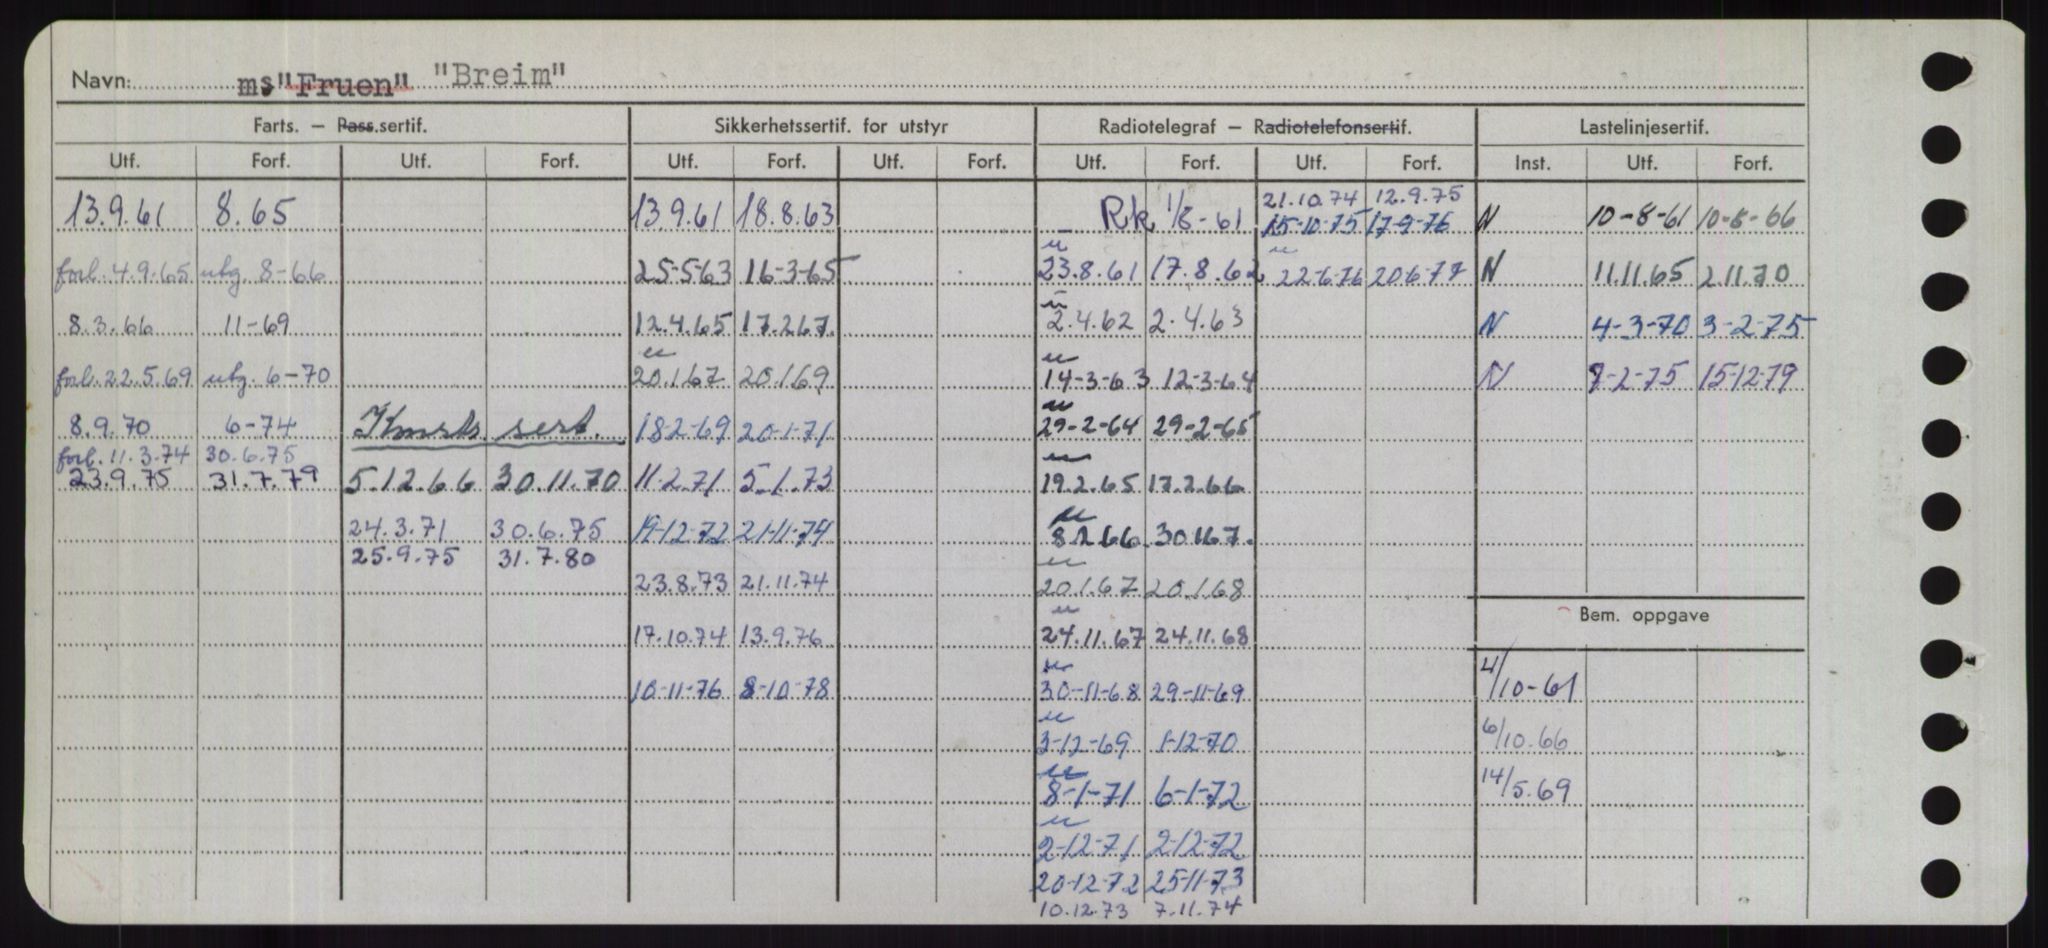 Navn: ms "Fruen" "Breim"
Farts. — Pass.sertif. Sikkerhetssertif. for utstyr Radiotelegraf — Radiotelefonsertif. Lastelinjesertif.
Utf. Forf. Utf. Forf. Utf. Forf. Utf. Forf. Utf. Forf. Utf. Forf. Inst. Utf. Forf.
21.10.74 12.9.75
13.9.61 8.65 13.9.61 18.8.63 Rk 1/8-61 15-10-75 17-9-76 N 10-8-61 10-8-66
forl. 4.9.65 utg. 8-66 25-5-63 16-3-65 23.8.61 17.8.62 22-6-76 20.6-77 N 11.11.65 2.11.70
8.3.66 11-69 12.4.65 17.2.67. 2.4.62 2.4.63 N 4-3-70 3-2-75
forl. 22.5.69 utg. 6-70 20.1.67 20.1.69 14-3-63 12-3-64 N 7-2-75 15-12-79
8.9.70 6-74 Kmrts sert. 18-2-69 20-1-71 29-2-64 29-2-65
forl. 11.3.74 30.6.75
23.9.75 31.7.79 5.12.66 30.11.70 11-2.71 5.1.73 19.2.65 17.2.66
24.3.71 30.6.75 19-12-72 21-11-74 8.2.66 30.1.67.
25.9.75 31.7.80
23.8.73 21.11.74 20.1.67 20.1.68
Bem. oppgave
17.10.74 13.9.76 24.11.67 24.11.68
10-11-76 8-10-78 30-11-68 29-11-69 4/10-61
3-12-69 1-12-70 6/10.66
8-1-71 6-1-72 14/5.69
2-12-71 2-12-72
20-12-72 25-11-73
10.12.73 7.11.74